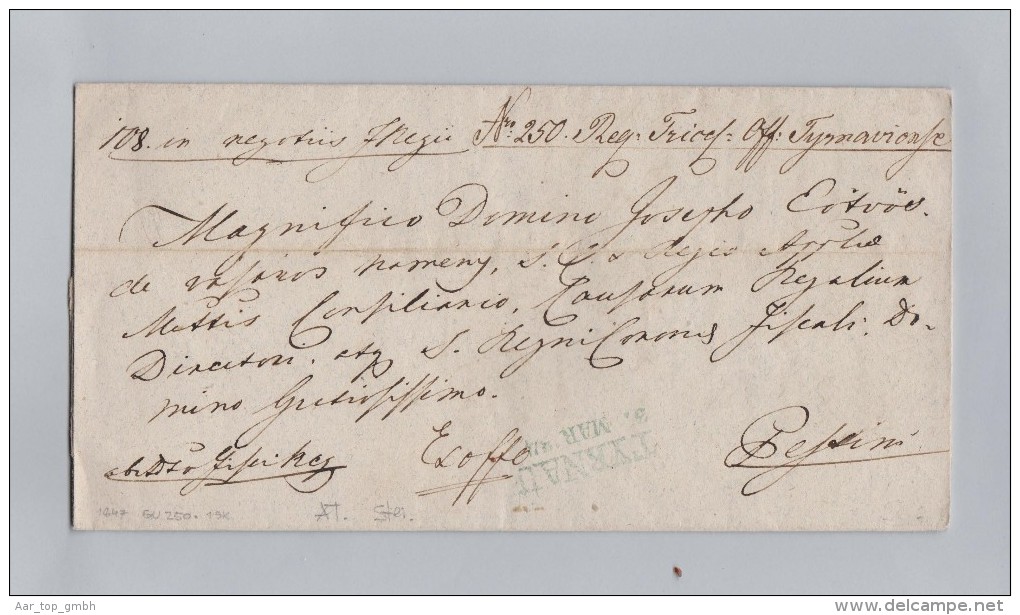 108. in negotiis Regii Nro 250. Reg: Trices: Off: Tyrnaviense
Magnifico Domino Josepho Eötvös
de vasáros nameny, S. C. & Regio Applicae
Mattis Consiliario, Causarum Regalium
Directori. atq S. Regni Coronae Fiscali. Do-
mino Gratiosissimo.
Exoffo Pestini
TYRNAU
3. MAR
1847 GU 250.- 15K AT. Stei.
Aar_top_gmbh
www.delcampe.net